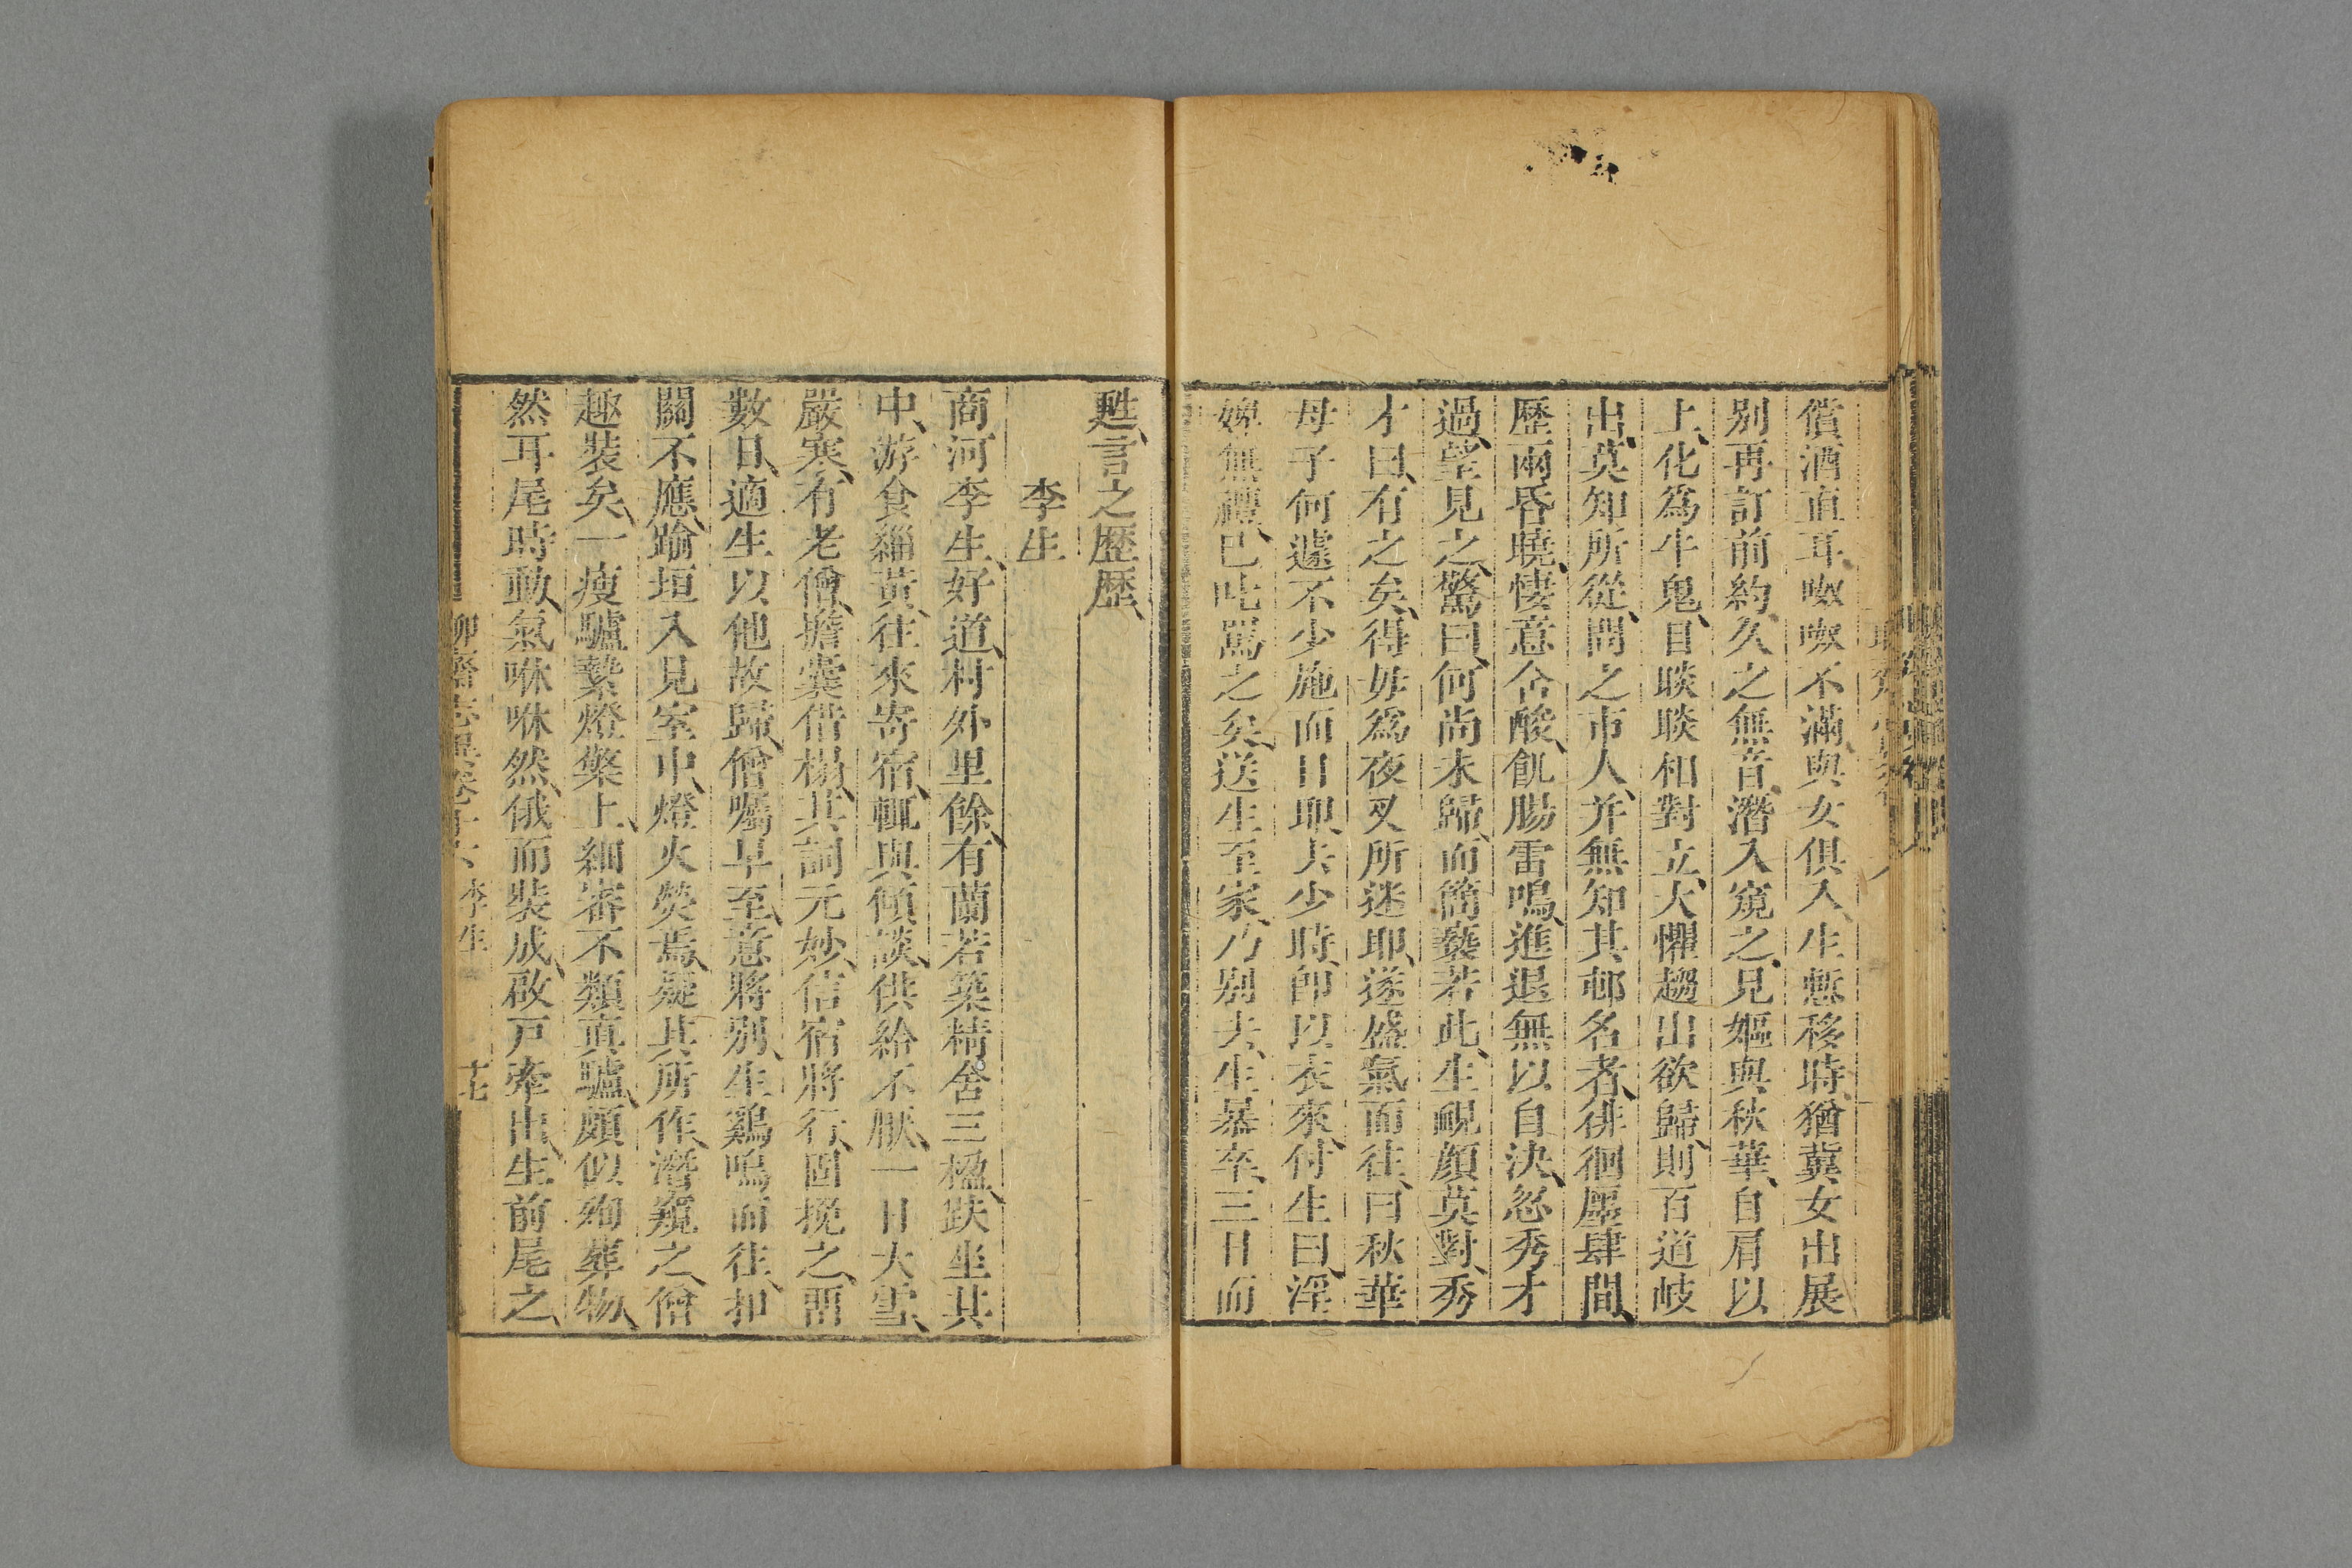 償酒直耳呶呶不滿與女俱入生慙移時猶冀女出展
别再訂前約久之無音潛入窺之見嫗與秋華自肩以
上化爲牛鬼目睒睒相對立大懼趨出欲歸則百道岐
出莫知所從問之市人并無知其邨名者徘徊壓肆間
歷兩昏曉悽意含酸飢腸雷鳴進退無以自決忽秀才
過望見之驚曰何尚未歸而簡褻若此生靦顔莫對秀
才曰有之矣得毋爲夜叉所迷耶遂盛氣而往曰秋華
母子何遽不少施面目耶去少時卽以衣來付生曰淫
婢無禮已叱駡之矣送生至家乃别去生暴卒三日而
甦言之歷歷
李生
商河李生好道村外里餘有蘭若築精舍三楹趺坐其
中游食緇黃往來寄宿輒與傾談供給不厭一日大雪
嚴寒有老僧擔囊借榻其詞元妙信宿將行固挽之畱
數日適生以他故歸僧囑早至意將别生鷄鳴而往扣
關不應踰垣入見室中燈火熒焉疑其所作潛窺之僧
趣裝矣一瘦驢縶燈檠上細審不類真驢頗似殉葬物
然耳尾時動氣咻咻然俄而裝成啟戸牽出生前尾之
聊齋志異卷十六 李生 十七